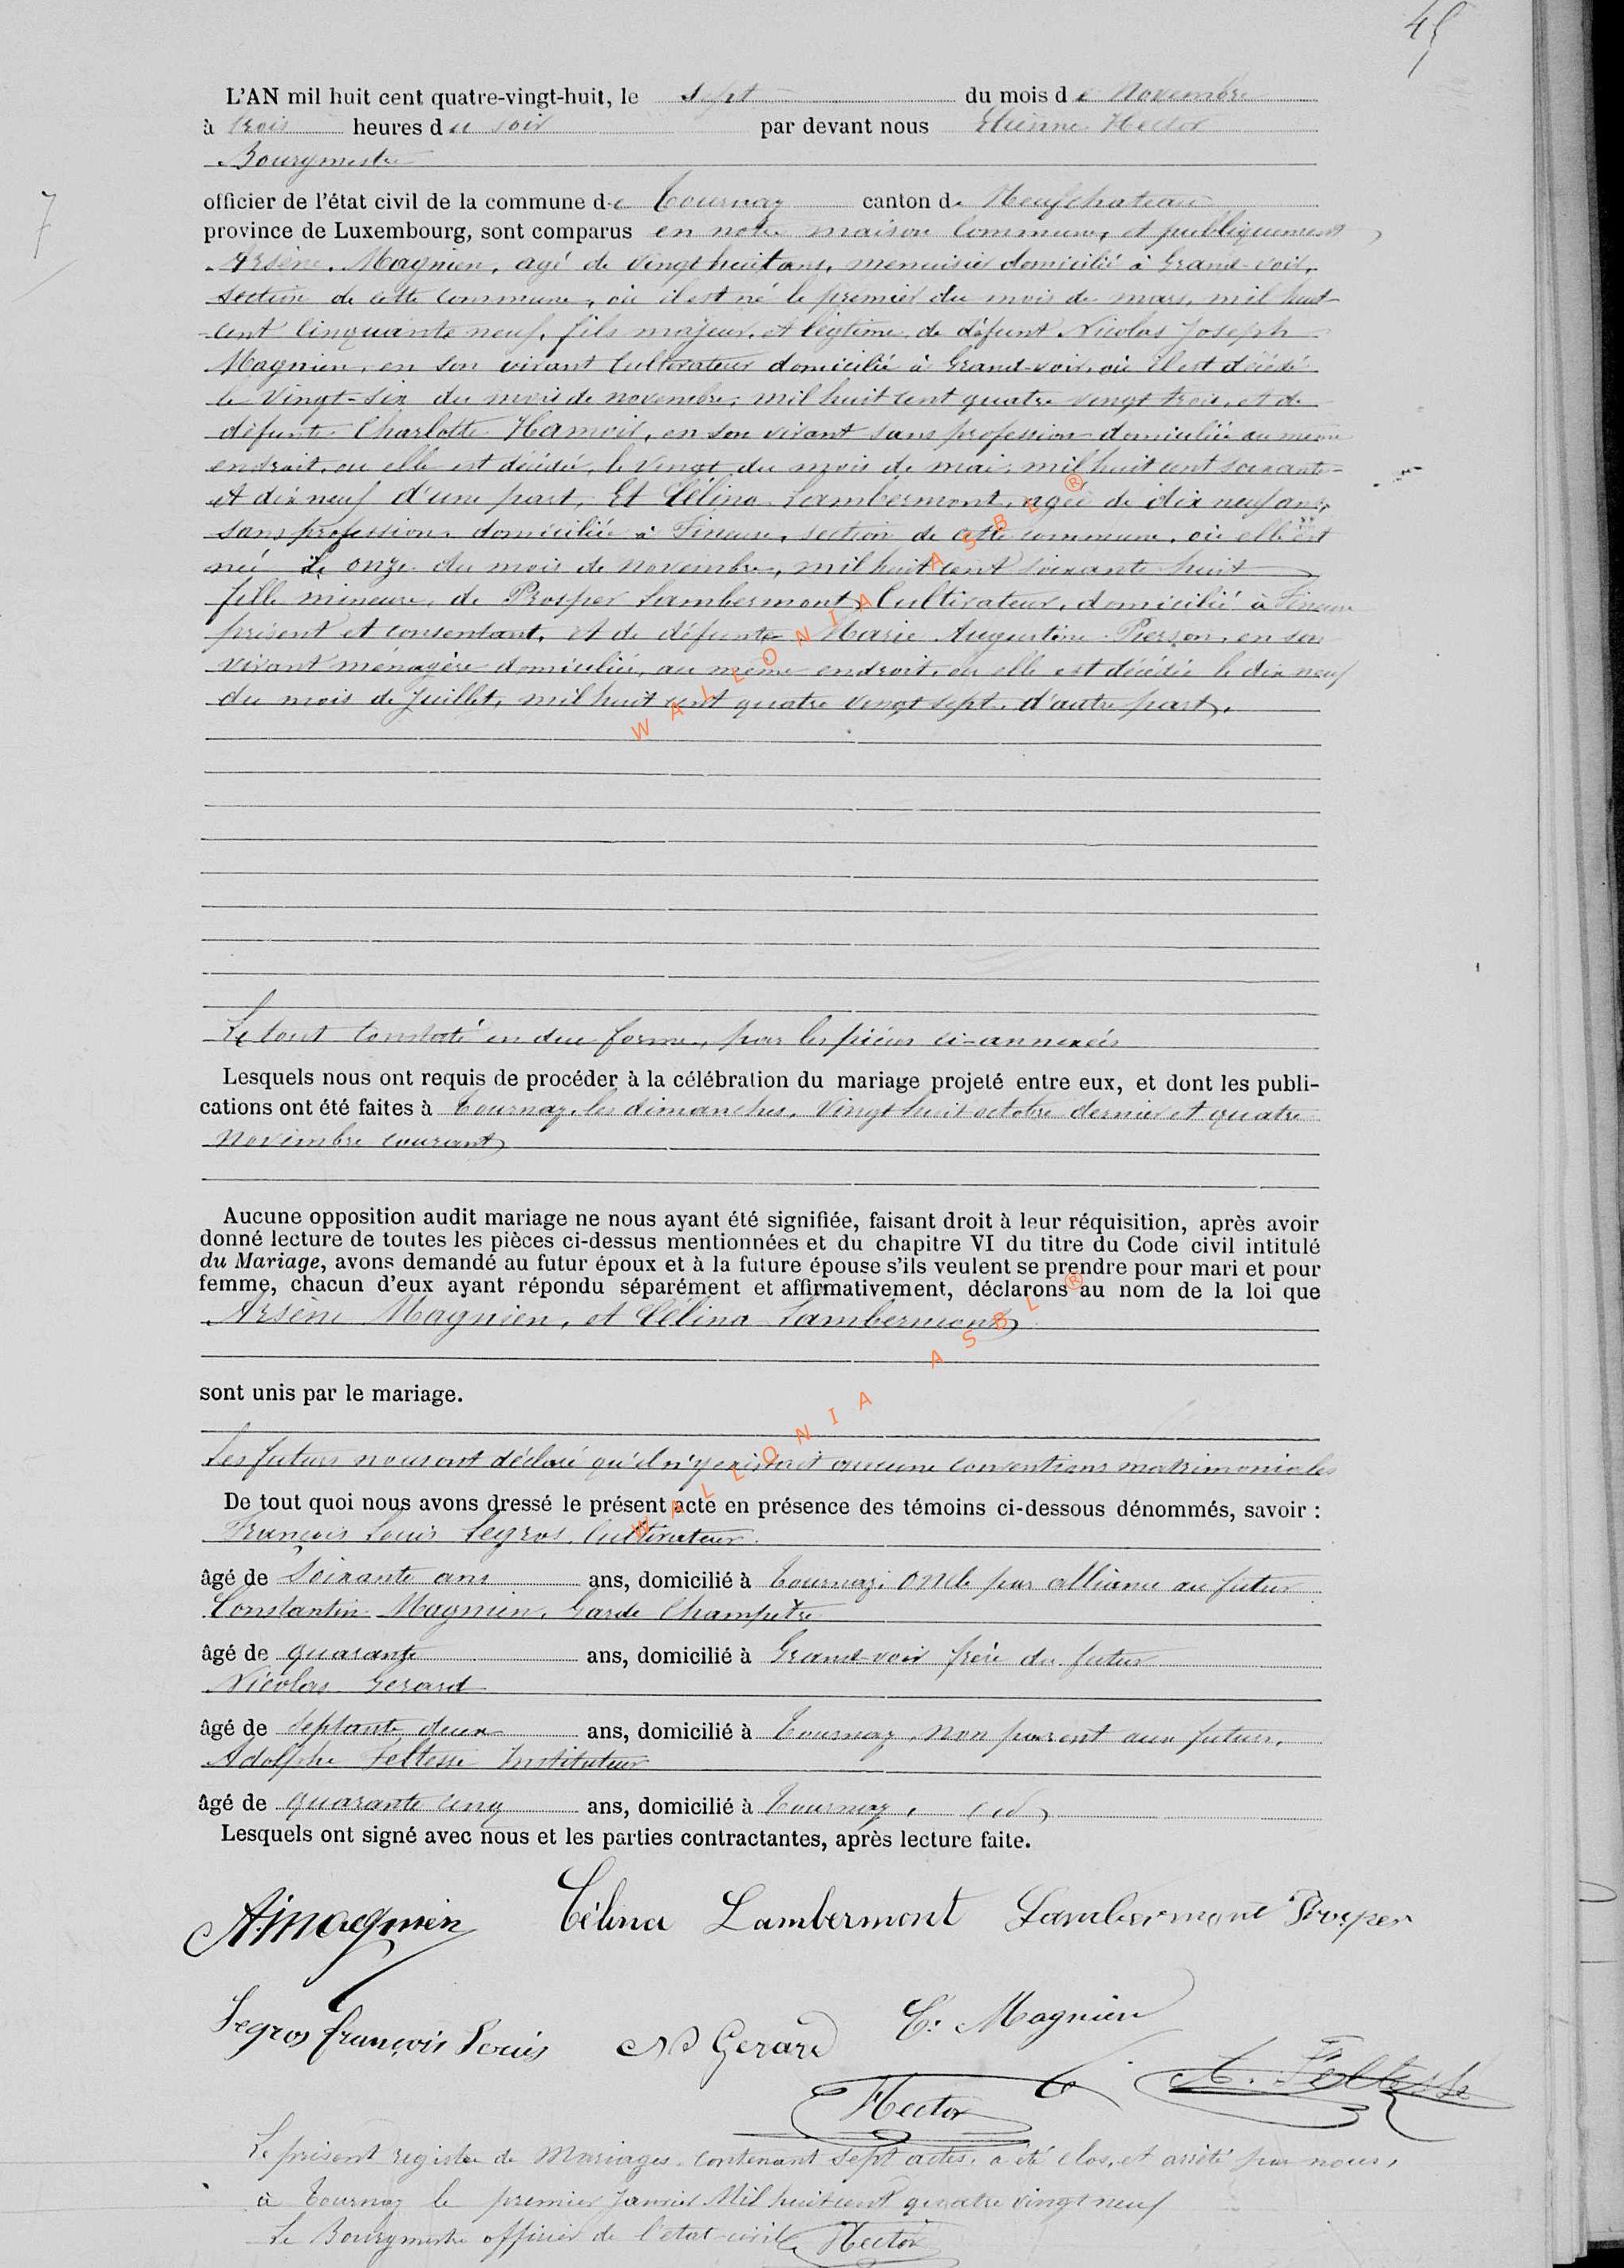 45
L'AN mil huit cent quatre-vingt-huit, le sept du mois de Novembre
à trois heures du soir par devant nous Etienne Hector
Bourgmestre
7
officier de l'état civil de la commune de Tournay canton de Neufchateau
province de Luxembourg, sont comparus en notre maison commune, et publiquement
Arsène Magnien, agé de vingt huit ans, menuisier domicilié à Grand-voir,
section de cette commune, où il est né le premier du mois de mars, mil huit-
cent cinquante neuf, fils majeur, et légitime de défunt Nicolas Joseph
Magnien, en son vivant Cultivateur domicilié à Grand-voir, où il est décédé
le vingt-six du mois de novembre, mil huit cent quatre vingt trois, et de
défunte Charlotte Hamoir, en son vivant sans profession domiciliée au même
endroit, ou elle est décédée, le vingt du mois de mai, mil huit cent soixante-
et dix neuf d'une part, Et Célina Lambermont, agée de dix neuf ans,
sans profession, domiciliée à Fineuse, section de cette commune, où elle est
née le onze du mois de novembre, mil huit cent soixante huit
fille mineure, de Prosper Lambermont, Cultivateur, domicilié à Fineuse
présent et consentant, et de défunte Marie Augustine Pierson, en son
vivant ménagère domiciliée, au même endroit, ou elle est décédée le dix neuf
du mois de Juillet, mil huit cent quatre vingt sept, d'autre part,
WALLONIA ASBL ®
Le tout constaté en due forme, par les pièces ci-annexées
Lesquels nous ont requis de procéder à la célébration du mariage projeté entre eux, et dont les publi-
cations ont été faites à Tournay, les dimanches, vingt huit octobre dernier et quatre
novembre courant
Aucune opposition audit mariage ne nous ayant été signifiée, faisant droit à leur réquisition, après avoir
donné lecture de toutes les pièces ci-dessus mentionnées et du chapitre VI du titre du Code civil intitulé
du Mariage, avons demandé au futur époux et à la future épouse s'ils veulent se prendre pour mari et pour
femme, chacun d'eux ayant répondu séparément et affirmativement, déclarons au nom de la loi que
Arsène Magnien, et Célina Lambermont
sont unis par le mariage.
WALLONIA ASBL ®
Les futurs nous ont déclaré qu'il n'y existait aucune conventions matrimoniales
De tout quoi nous avons dressé le présent acte en présence des témoins ci-dessous dénommés, savoir :
François Louis Legros, Cultivateur
âgé de soixante ans ans, domicilié à Tournay, oncle par alliance au futur
Constantin Magnien, Garde Champêtre
âgé de quarante ans, domicilié à Grand-voir frère du futur
Nicolas Gerard
âgé de septante deux ans, domicilié à Tournay, non parent aux futurs,
Adolphe Feltesse Instituteur
âgé de quarante cinq ans, domicilié à Tournay, id
Lesquels ont signé avec nous et les parties contractantes, après lecture faite.
A. Magnien Célina Lambermont Lambermont Prosper
Legros françois Louis N Gerard C. Magnien
A. Feltesse
Hector
Le présent registre de Mariages, contenant sept actes, a été clos, et arrêté par nous,
à Tournay le premier Janvier Mil huit cent quatre vingt neuf
Le Bourgmestre officier de l'état-civil Hector